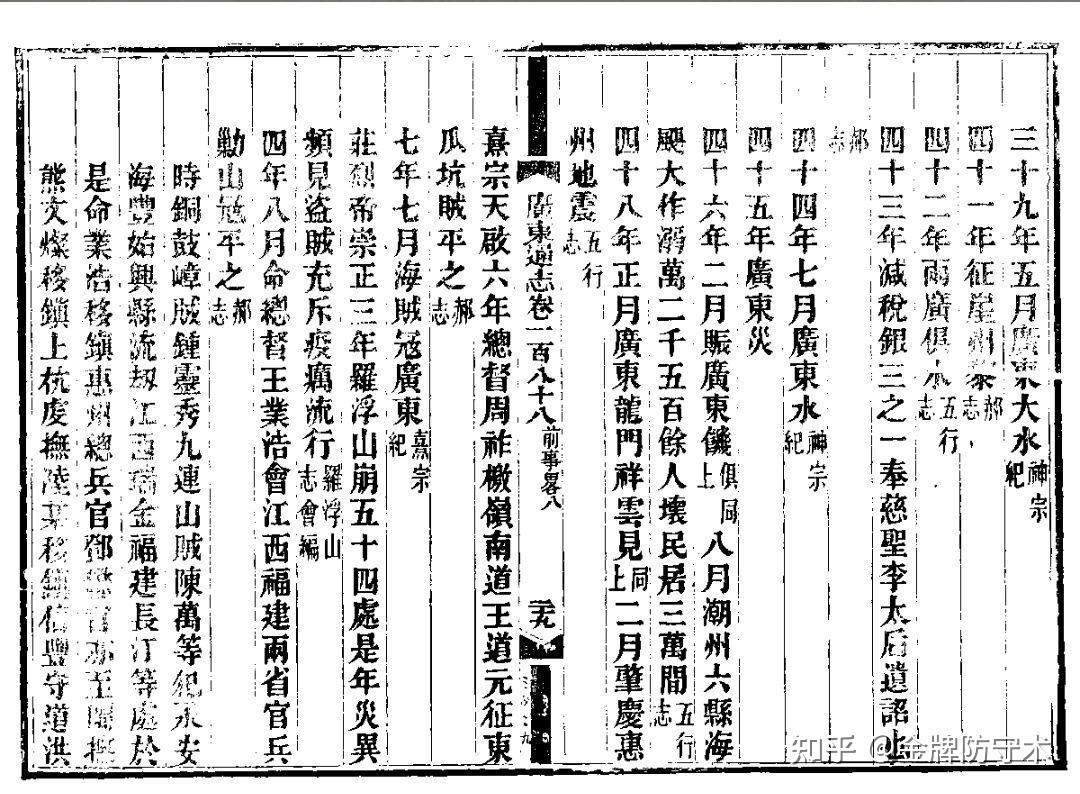 三十九年五月廣東大水神宗紀
四十一年征崖州黎郝志
四十二年兩廣俱水五行志
四十三年減稅銀三之一奉慈聖李太后遺詔也
郝志
四十四年七月廣東水神宗紀
四十五年廣東災
四十六年二月賑廣東饑俱同上八月潮州六縣海
颶大作溺萬二千五百餘人壞民居三萬間五行志
四十八年正月廣東龍門祥雲見同上二月肇慶惠
州地震五行志
廣東通志卷一百八十八前事畧八
熹宗天啟六年總督周祚檄嶺南道王道元征東
瓜坑賊平之郝志
七年七月海賊寇廣東熹宗紀
莊烈帝崇正三年羅浮山崩五十四處是年災異
頻見盜賊充斥疫癘流行羅浮山志會編
四年八月命總督王業浩會江西福建兩省官兵
勦山寇平之郝志
時銅鼓嶂賊鍾靈秀九連山賊陳萬等犯永安
海豐始興縣流刼江西瑞金福建長汀等處於
是命業浩移鎮惠州總兵官鄧懋官亦至閩撫
熊文燦移鎮上杭虔撫陸移鎮信豐守道洪
知乎 @金牌防守术